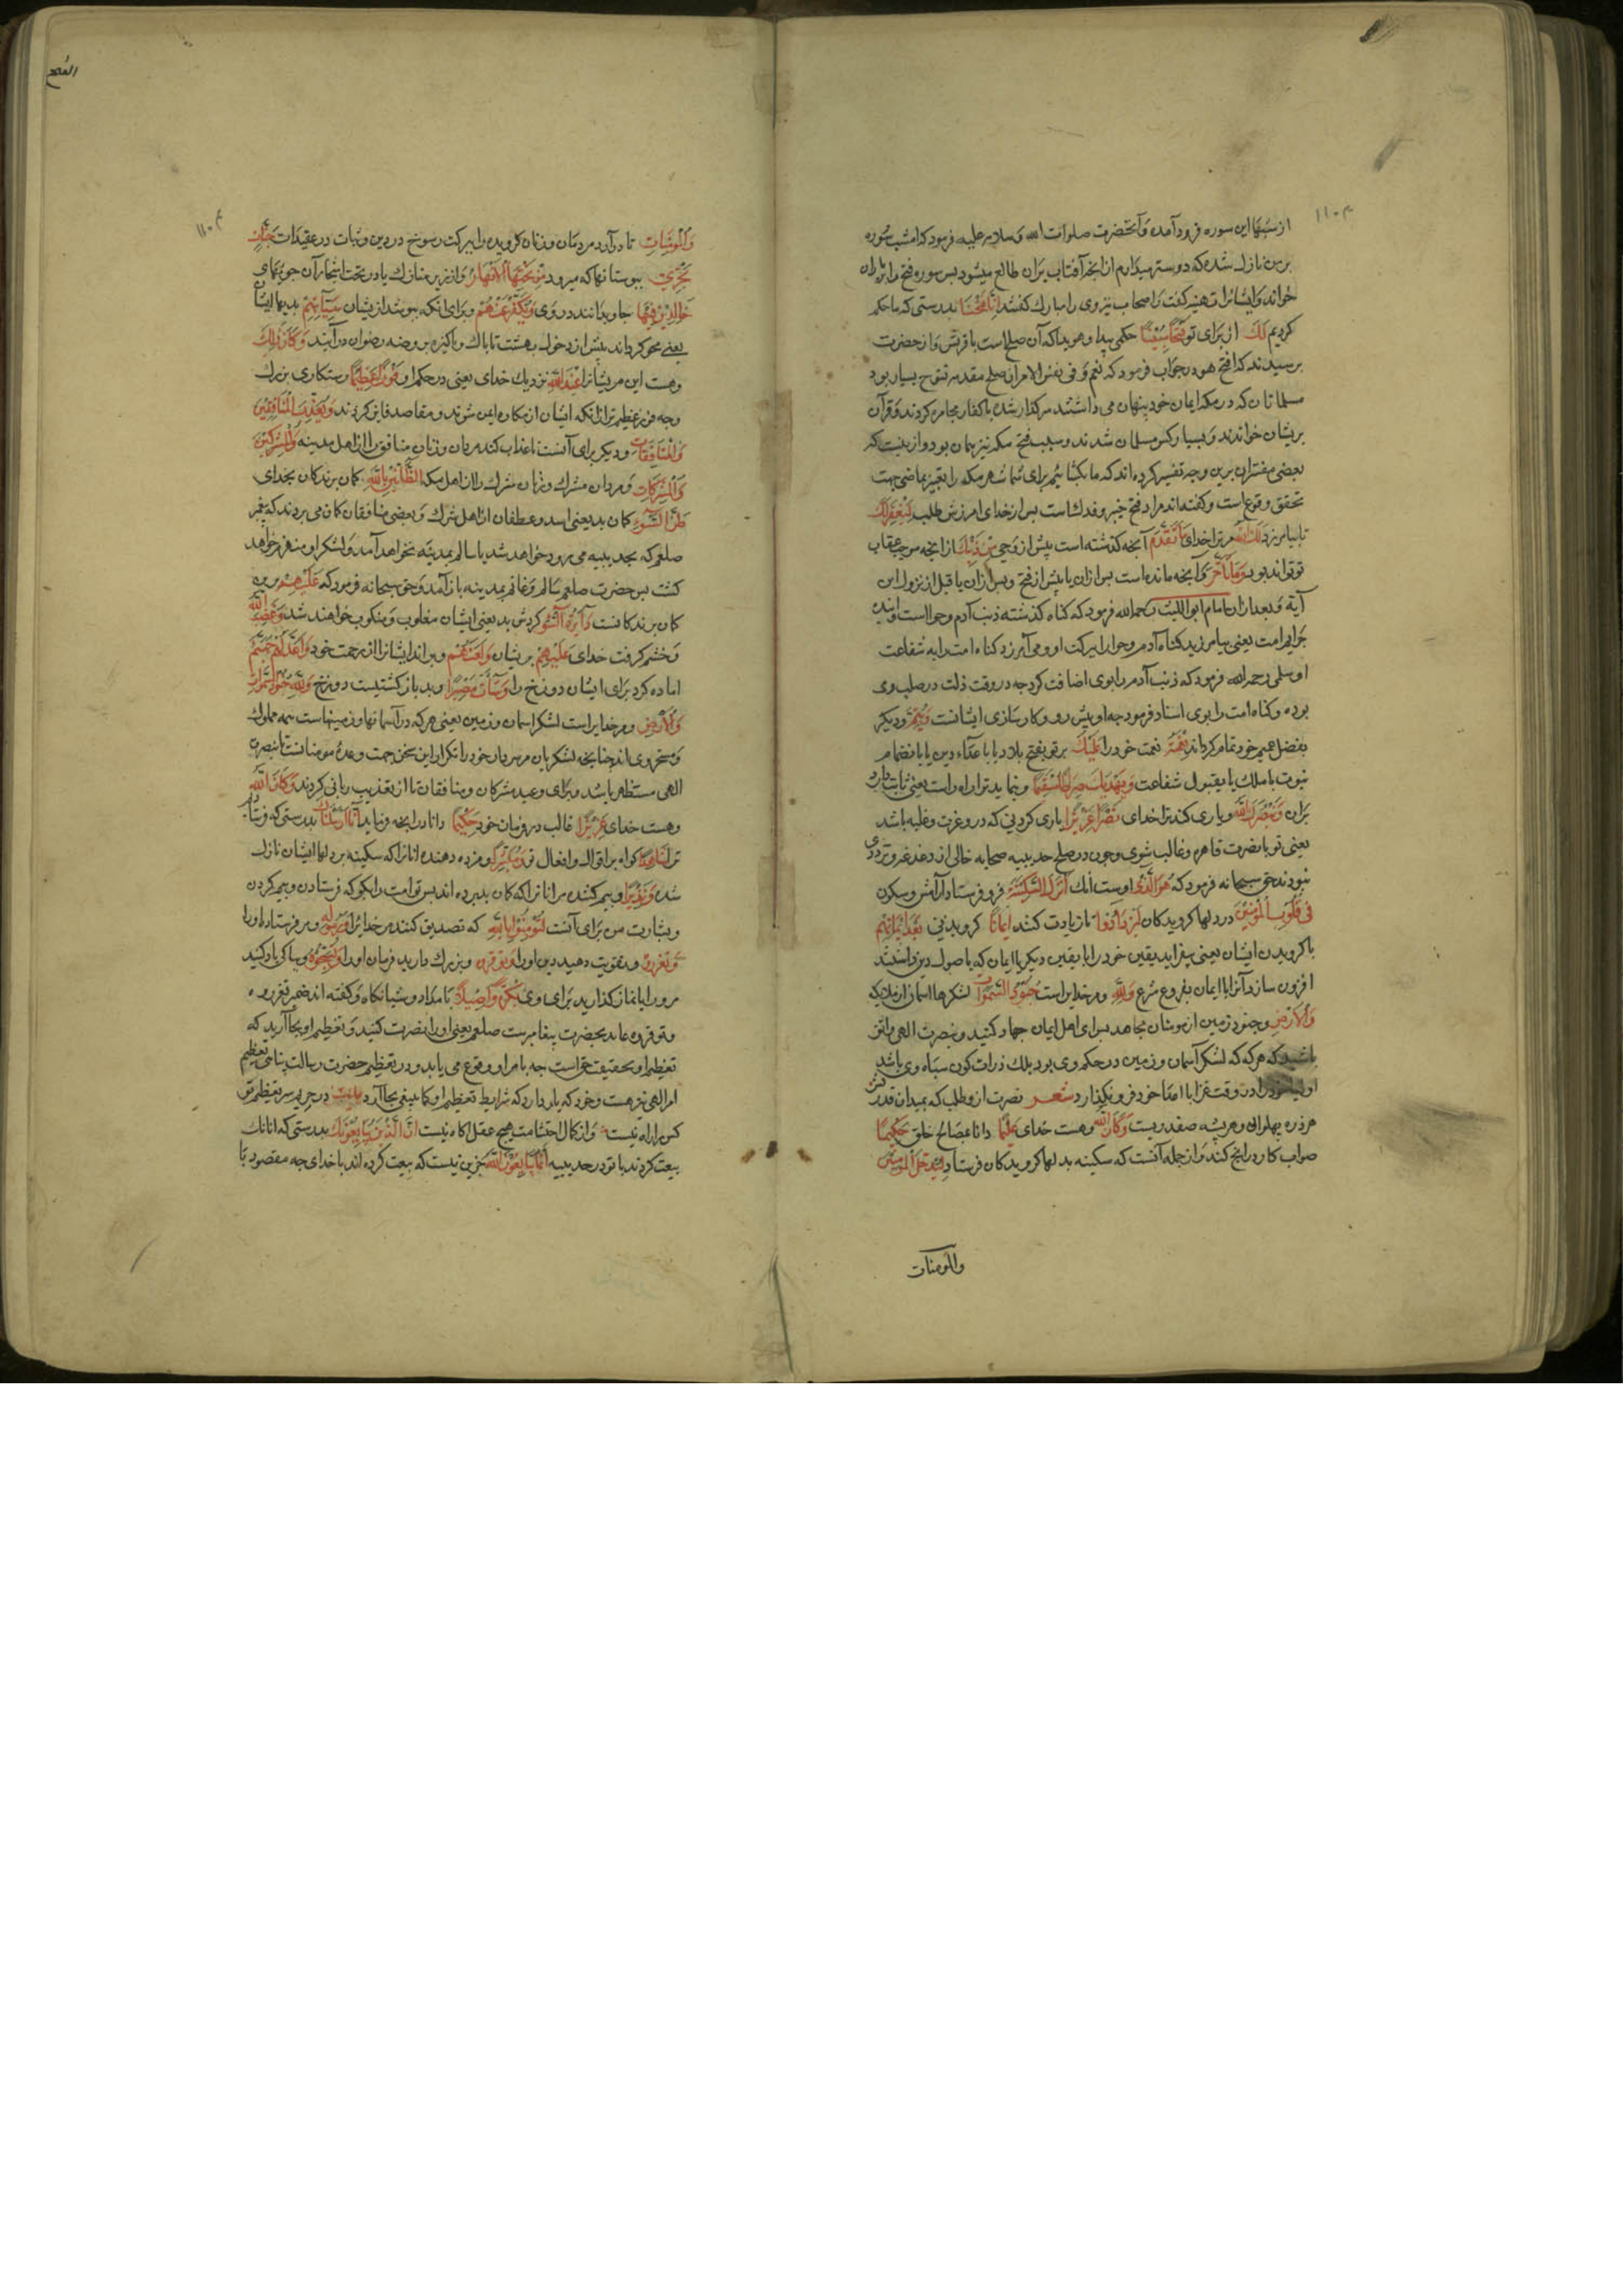 از شبها این سوره فرود آمده و آنحضرت صلوات الله و سلامه علیه فرمود که امشب سوره
بر من نازل شده که دوستر میدارم از انچه آفتاب بران طالع میشود بس سوره فتح را بر یاران
خواند و ایشانرا تهنیه کفت و اصحاب نیز وی را مبارک کفتند انا فتحنا بدرستی که ما حکم
کردیم لک از برای تو فتحا مبینا حکمی پیدا و هویدا که آن صلح است با قریش و از حضرت
برسیدند که افتح هو در جواب فرمود که نعم و فی نفس الامر آن صلح مقدمه فتوح بسیار بود
مسلمانان که در مکه ایمان خود پنهان می داشتند سرکذار شده با کفار مجاهره کردند و قرآن
بریشان خواندند و بسیار کس مسلمان شدند و سبب فتح مکه نیز همان بود و ازینست که
بعضی مفسران برین وجه تفسیر کرده اند که ما بکشائیم برای شما شهر مکه را تعبیر بماضی جهت
تحقق وقوع است و کفته اند مراد فتح خیبر و فدک است بس از خدای امرزش طلب لیغفر لک
تا بیامرزد لک الله مر ترا خدای ما تقدم آنچه کذشته است پیش از وحی من ذنبک از انچه موجب عقاب
تو تواند بود و ما تاخر و آنچه مانده است بس ازان یا پیش از فتح و بس ازان یا قبل از نزول این
آیة و بعد ازان امام ابو اللیث رحمه الله فرمود که کناه کذشته ذنب آدم و حوا است و اینده
جرایم امت یعنی بیامرزید کناه آدم و حوا را ببرکت او و می آمرزد کناه امت را به شفاعت
او سلمی رحمه الله فرمود که ذنب آدم را بوی اضافت کرد چه در وقت ذلت در صلب وی
بوده و کناه امت را بوی اسناد فرمود چه او پیش رو و کارسازی ایشانست و یتم و دیکر
بفضل عمیم خود تمام کرداند نعمته نعمت خود را علیک بر تو بفتح بلاد یا باعلاء دین یا بانضمام
نبوت با ملک یا بقبول شفاعت و یهدیک صراطا مستقیما و بنماید ترا راه راست یعنی ثابت دارد
بران و ینصرک الله و یاری کند ترا خدای نصرا عزیزا یاری کردنی که در و عزت و غلبه باشد
یعنی تو با نصرت قاهره و غالب شوی و چون در صلح حدیبیه صحابه خالی از دغدغه و ترددی
نبودند حق سبحانه فرمود که هو الذی اوست آنک انزل السکینة فرو فرستاد آرامش و سکون
فی قلوب المؤمنین در دلها کرویدکان لیزدادوا تا زیادت کنند ایمانا کرویدنی مع ایمانهم
با کرویدن ایشان یعنی بیفزایند یقین خود را با یقین دیکر یا ایمان که باصول دین داشتند
افزون سازد آنرا با ایمان بفروع شرع و لله و مر خدایراست جنود السموات لشکرها اسمان از ملایکه
و الارض و جنود زمین از مومنان مجاهد بس ای اهل ایمان جهاد کنید و بنصرت الهی واثق
باشید که هر که که لشکر آسمان و زمین در حکم وی بود بلک ذرات کون سپاه وی باشد
اولیاء خود را در وقت غزا با اعدا خود فرو نکذارد شعر نصرت از و طلب که بمیدان قدرتش
هر ذره پهلوانی و هر پشه صفدریست و کان الله و هست خدای علیما دانا بمصالح خلق حکیما
صواب کار در انچ کند و از جمله آنست که سکینه بدلها کرویدکان فرستاد لیدخل المؤمنین
والمومنات
الفتح
و المؤمنات تا درآرد مردمان و زنان کرویده را ببرکت رسوخ در دین و ثبات در عقیدات جنات
تجری ببوستانها که میرود من تحتها الانهار و از زیر منازل یا در تحت اشجار آن جویهای
خالدین فیها جاویدانند در وی و یکفر عنهم و برای انکه بپوشد از یشان سیئاتهم بدیها ایشان
یعنی محو کرداند پیش از دخول بهشت تا پاک و پاکیزه بروضه رضوان درآیند و کان ذلک
و هست این مر یشانرا عند الله نزدیک خدای یعنی در حکم او فوزا عظیما رستکاری بزرک
و چه فوز عظیم تر از انکه ایشان از مکاره ایمن شوند و مقاصد فایز کردند و یعذب المنافقین
و المنافقات و دیکر برای آنست تا عذاب کند مردان و زنان منافق را از اهل مدینه و المشرکین
و المشرکات و مردان مشرک و زنان مشرک را از اهل مکه الظانین بالله کمان برندکان بخدای
ظن السوء کمان بد یعنی اسد و غطفان از اهل شرک و بعضی منافقان کمان می بردند که پیغمبر
صلعم که بحدیبیه می رود خواهد شد یا سالم بمدینه نخواهد آمد و لشکر او منهزم خواهد
کشت بس حضرت صلعم سالم و غانم بمدینه باز آمد و حق سبحانه فرمود که علیهم برین
کمان برندکانست دائرة السوء کردش بد یعنی ایشان مغلوب و منکوب خواهند شد و غضب الله
و خشم کرفت خدای علیهم بریشان و لعنهم و براند ایشانرا از رحمت خود و اعد لهم جهنم
اماده کرد برای ایشان دوزخ را و ساءت مصیرا و بد باز کشتیست دوزخ و لله جنود السموات
و الارض و مر خدایراست لشکر اسمان و زمین یعنی هر که در آسمانها و زمینهاست همه مملوک
و مسخر وی اند چنانچه لشکریان مر سردار خود را تکرار این سخن جهت وعده مومنانست تا بنصرت
الهی مستظهر باشند و برای وعید مشرکان و منافقان تا از تعذیب ربانی کردند و کان الله
و هست خدای عزیزا غالب در فرمان خود حکیما دانا در انچه فرماید انا ارسلناک بدرستی که فرستادیم
ترا شاهدا کواه بر اقوال و افعال تو و مبشرا و مژده دهنده انانرا که سکینه بر دلها ایشان نازل
شده و نذیرا و بیم کننده مر انانرا که کمان بد برده اند بس تو امت را بکو که فرستادن و بیم کردن
و بشارت من برای آنست لتؤمنوا بالله که تصدیق کنند مر خدایرا و رسوله و مر فرستاده او را
و تعزروه و تقویت دهید دین او را و توقروه و بزرک دارید فرمان او را و تسبحوه و بپاکی یاد کنید
مر و را یا نماز کذارید برای وی بکرة و اصیلا بامداد و شبانکاه و کفته اند ضمیر تعزروه
و توقروه عاید بحضرت پیغامبرست صلعم یعنی او را نصرت کنید و تعظیم او بجا آرید که
تعظیم او بحقیقت تعظیم حق است چه بامر او وقوع می یابد و در تعظیم حضرت رسالت پناهی تعظیم
امر الهی نیز هست و خرد که یار دارد که شرایط تعظیم او کما ینبغی بجا آرد بیت در حریم سر تعظیم تو
کس را راه نیست و از کمال احتشامت هیچ عقل اکاه نیست ان الذین یبایعونک بدرستی که انانک
بیعت کردند با تو در حدیبیه انما یبایعون الله جزین نیست که بیعت کرده اند با خدای چه مقصود با